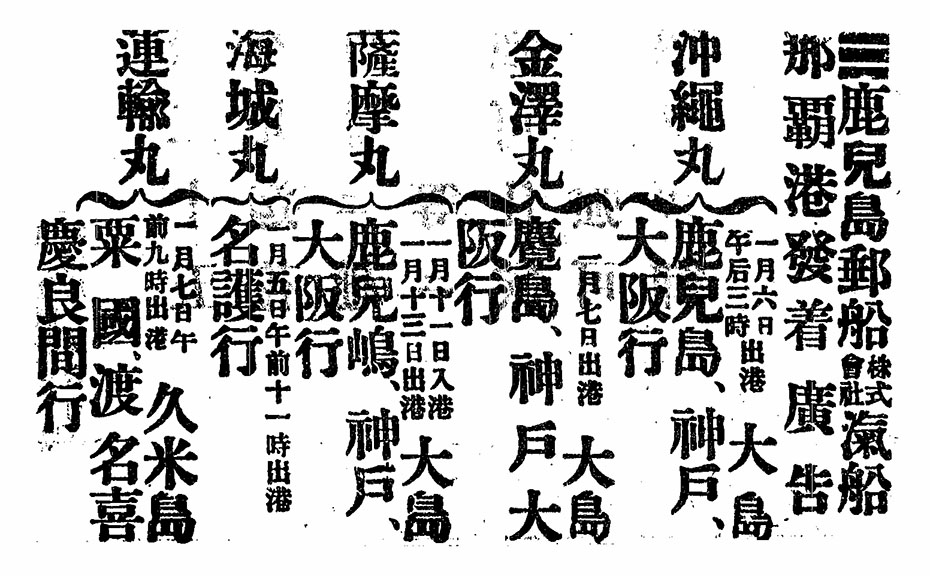 鹿兒島郵船株式會社汽船
那覇港發着廣告
沖繩丸
一月六日午后三時出港
大島
鹿兒島、神戸、
大阪行
金澤丸
一月七日出港
大島
麑島、神戸大
阪行
薩摩丸
一月十一日入港
一月十三日出港
大島
鹿兒嶋、神戸、
大阪行
海城丸
一月五日午前十一時出港
名護行
運輸丸
一月七日午
前九時出港
久米島
粟國、渡名喜
慶良間行